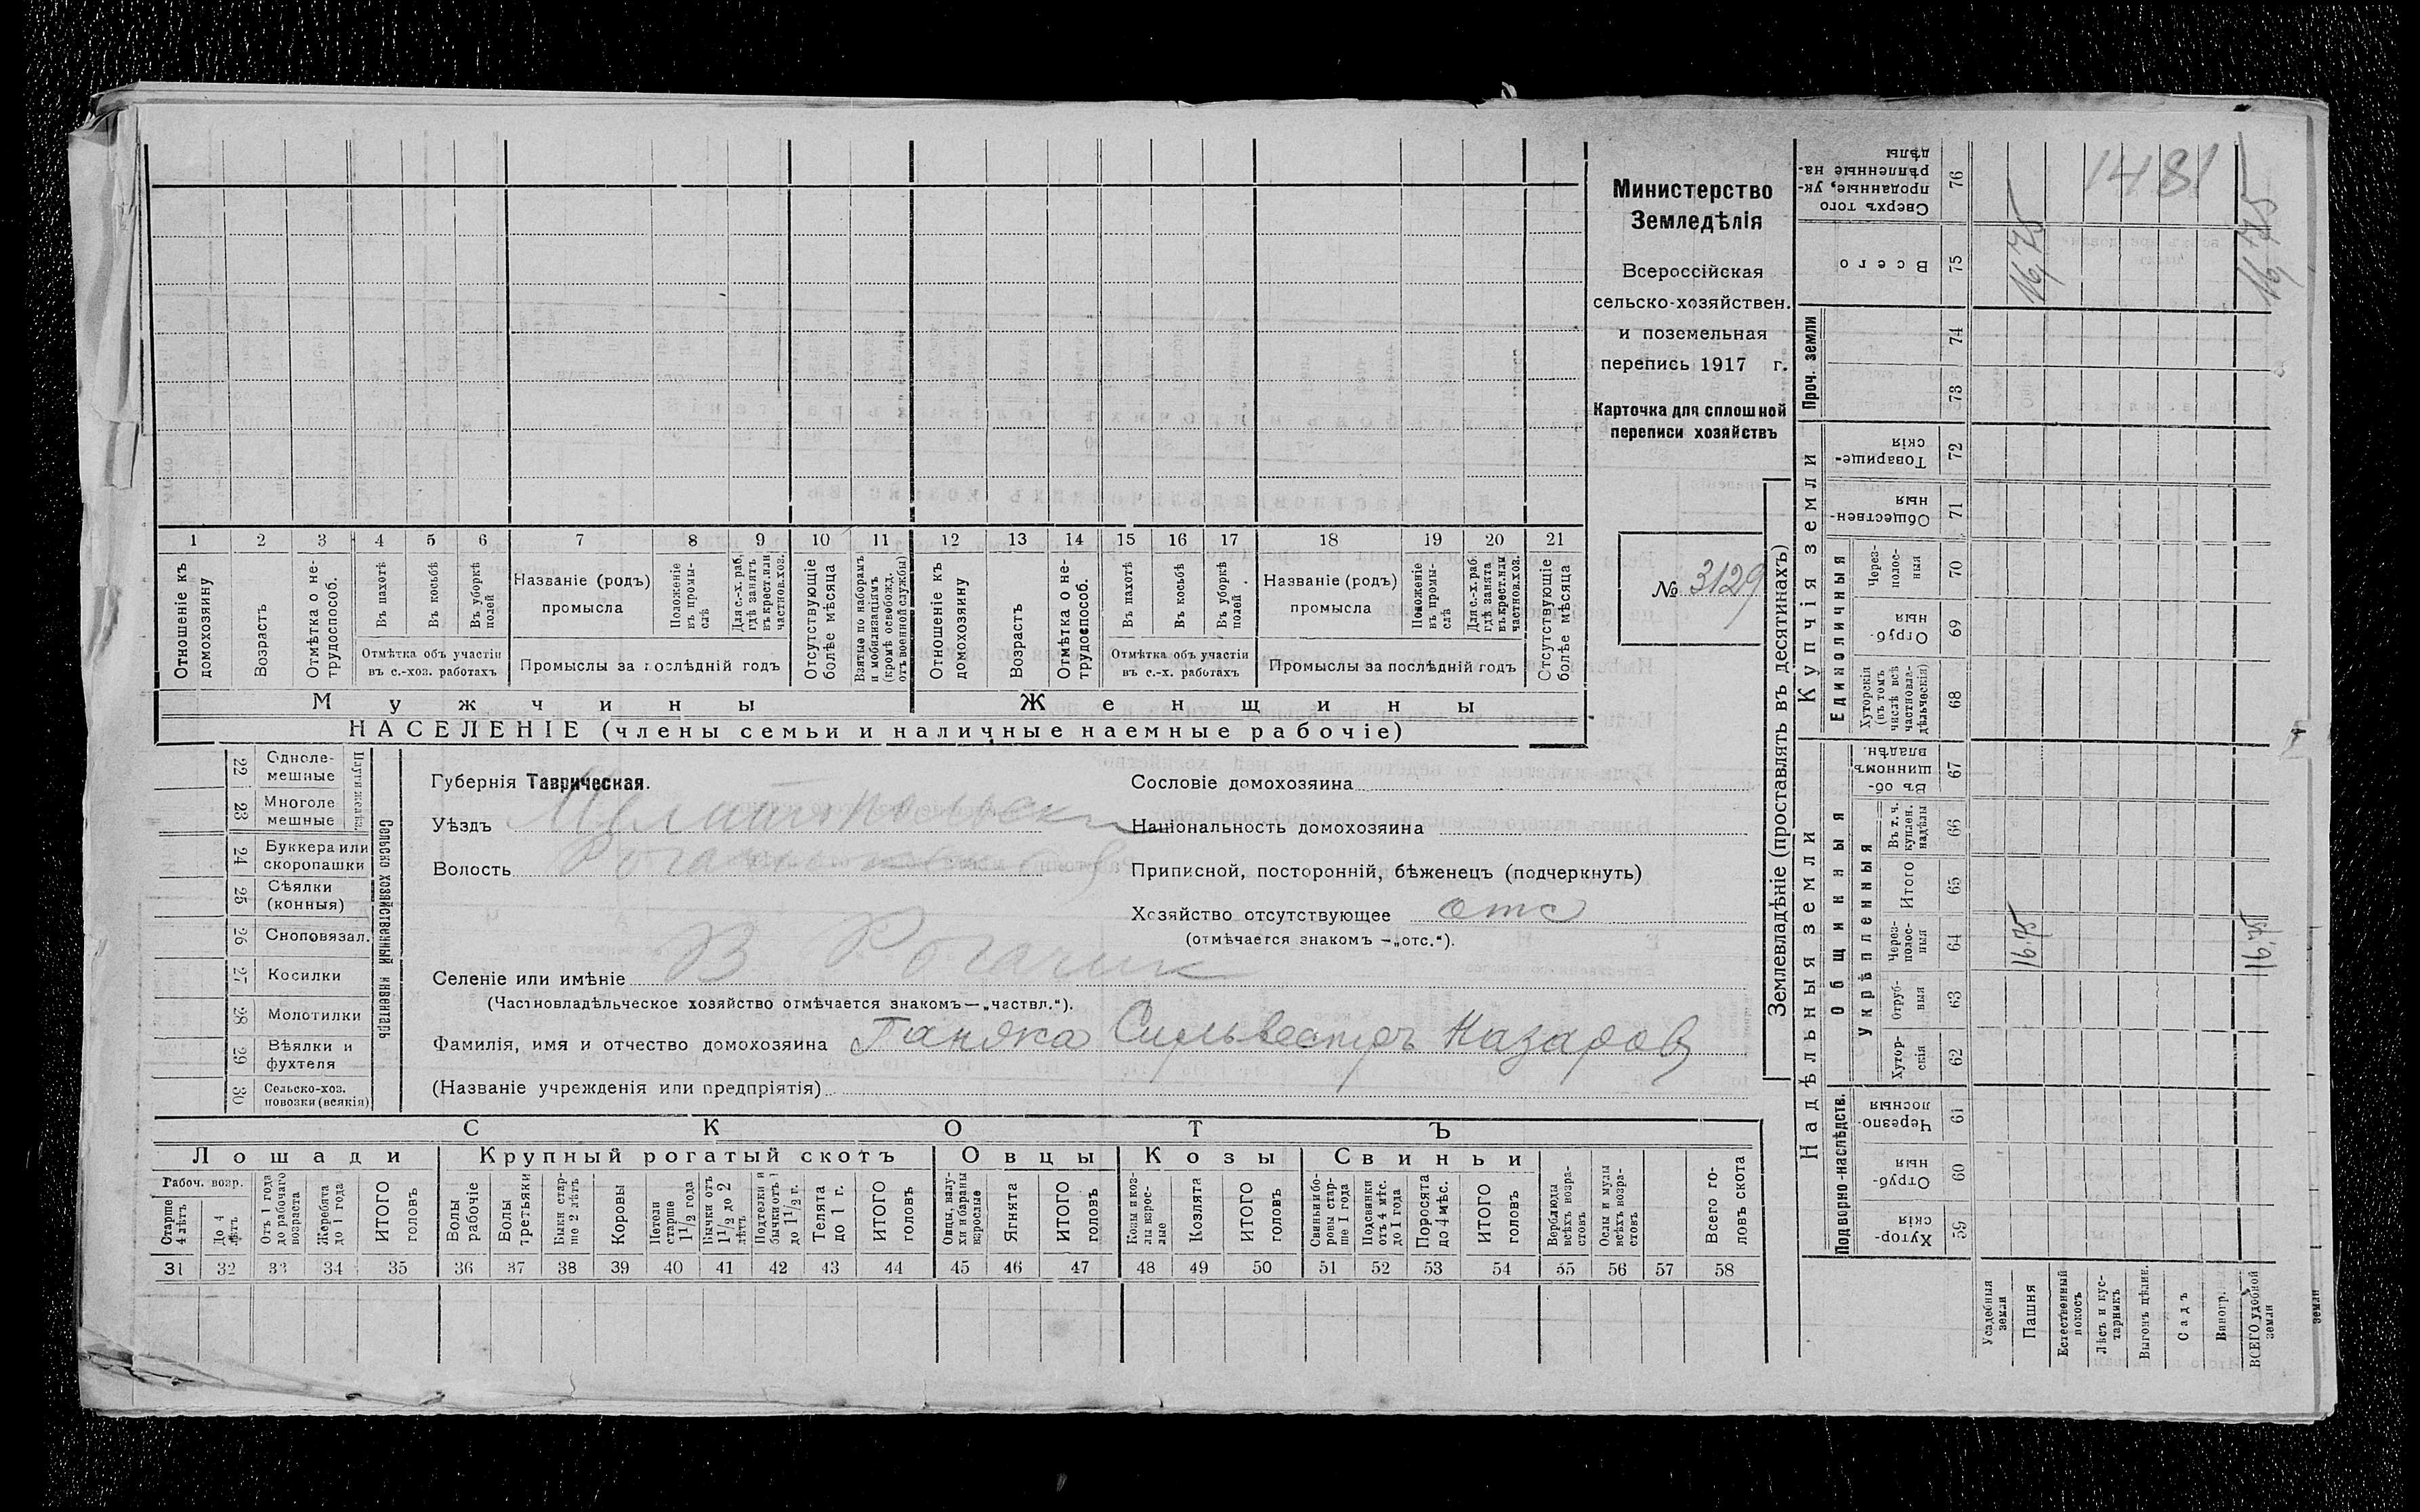 1481
Министерство
Земледѣлія
Всероссійская
сельско-хозяйствен.
и поземельная
перепись 1917 г.
Карточка для сплошной
переписи хозяйствъ
№ 3129
1 2 3 4 5 6 7 8 9 10 11 12 13 14 15 16 17 18 19 20 21
Отношеніе къ домохозяину
Возрастъ
Отмѣтка о не-трудоспособ.
Въ пахотѣ
Въ косьбѣ
Въ уборкѣ полей
Отмѣтка объ участіи въ с.-хоз. работахъ
Названіе (родъ) промысла
Положеніе въ промы-слѣ
Для с.-х. раб. гдѣ занятъ въ крест. или частнов. хоз.
Промыслы за послѣдній годъ
Отсутствующіе болѣе мѣсяца
Взятые по наборамъ и мобилизаціямъ (кромѣ освобожд. отъ военной службы)
Отношеніе къ домохозяину
Возрастъ
Отмѣтка о не-трудоспособ.
Въ пахотѣ
Въ косьбѣ
Въ уборкѣ полей
Отмѣтка объ участіи въ с.-х. работахъ
Названіе (родъ) промысла
Положеніе въ промы-слѣ
Для с.-х. раб. гдѣ занята въ крест. или частнов. хоз.
Промыслы за послѣдній годъ
Отсутствующіе болѣе мѣсяца
Мужчины Женщины
НАСЕЛЕНІЕ (члены семьи и наличные наемные рабочіе)
Сельско-хозяйственный инвентарь
Плуги желѣз.
22 Одноле-мешные
23 Многоле мешные
24 Буккера или скоропашки
25 Сѣялки (конныя)
26 Сноповязал.
27 Косилки
28 Молотилки
29 Вѣялки и фухтеля
30 Сельско-хоз. повозки (всякія)
Губернія Таврическая.
Уѣздъ Мелитопольск
Волость
Селеніе или имѣніе В Рогачик
(Частновладѣльческое хозяйство отмѣчается знакомъ—„частвл.“).
Фамилія, имя и отчество домохозяина Ганжа Сильвестръ Назаров
(Названіе учрежденія или предпріятія)
Сословіе домохозяина
Національность домохозяина
Приписной, посторонній, бѣженецъ (подчеркнуть)
Хозяйство отсутствующее отс
(отмѣчается знакомъ —„отс.“).
СКОТЪ
Лошади Крупный рогатый скотъ Овцы Козы Свиньи
Рабоч. возр.
Старше 4 лѣтъ
До 4 лѣтъ
Отъ 1 года до рабочаго возраста
Жеребята до 1 года
ИТОГО головъ
Волы рабочіе
Волы третьяки
Быки стар-ше 2 лѣтъ
Коровы
Нетели старше 1 1/2 года
Бычки отъ 1 1/2 до 2 лѣтъ
Подтелки и бычки отъ 1 до 1 1/2 г.
Телята до 1 г.
ИТОГО головъ
Овцы, валу-хи и бараны взрослые
Ягнята
ИТОГО головъ
Козы и коз-лы взрос-лые
Козлята
ИТОГО головъ
Свиньи и бо-ровы стар-ше 1 года
Подсвинки отъ 4 мѣс. до 1 года
Поросята до 4 мѣс.
ИТОГО головъ
Верблюды всѣхъ возра-стовъ
Ослы и мулы всѣхъ возра-стовъ
Всего го-ловъ скота
31 32 33 34 35 36 37 38 39 40 41 42 43 44 45 46 47 48 49 50 51 52 53 54 55 56 57 58
Землевладѣніе (проставлять въ десятинахъ)
Купчія земли
Надѣльныя земли
Проч. земли
Единоличныя
Общинныя
Укрѣпленныя
Подворно-наслѣдств.
Сверхъ того проданные, ук-рѣпленные на-дѣлы 76
Всего 75
74
73
Товарище-скія 72
Обществен-ныя 71
Через-полос-ныя 70
Отруб-ныя 69
Хуторскія (въ томъ числѣ всѣ частновла-дѣльческія) 68
Въ об-щинномъ владѣн. 67
Въ т. ч. куплен. надѣлы 66
Итого 65
Через-полос-ныя 64
Отруб-ныя 63
Хутор-скія 62
Черезпо-лосныя 61
Отруб-ныя 60
Хутор-скія 59
Усадебныя земли
Пашня 16,75 16,75
Естественный покосъ
Лѣсъ и кус-тарникъ
Выгонъ цѣлин.
Садъ
Виногр.
ВСЕГО удобной земли 16,75 16,75
земли